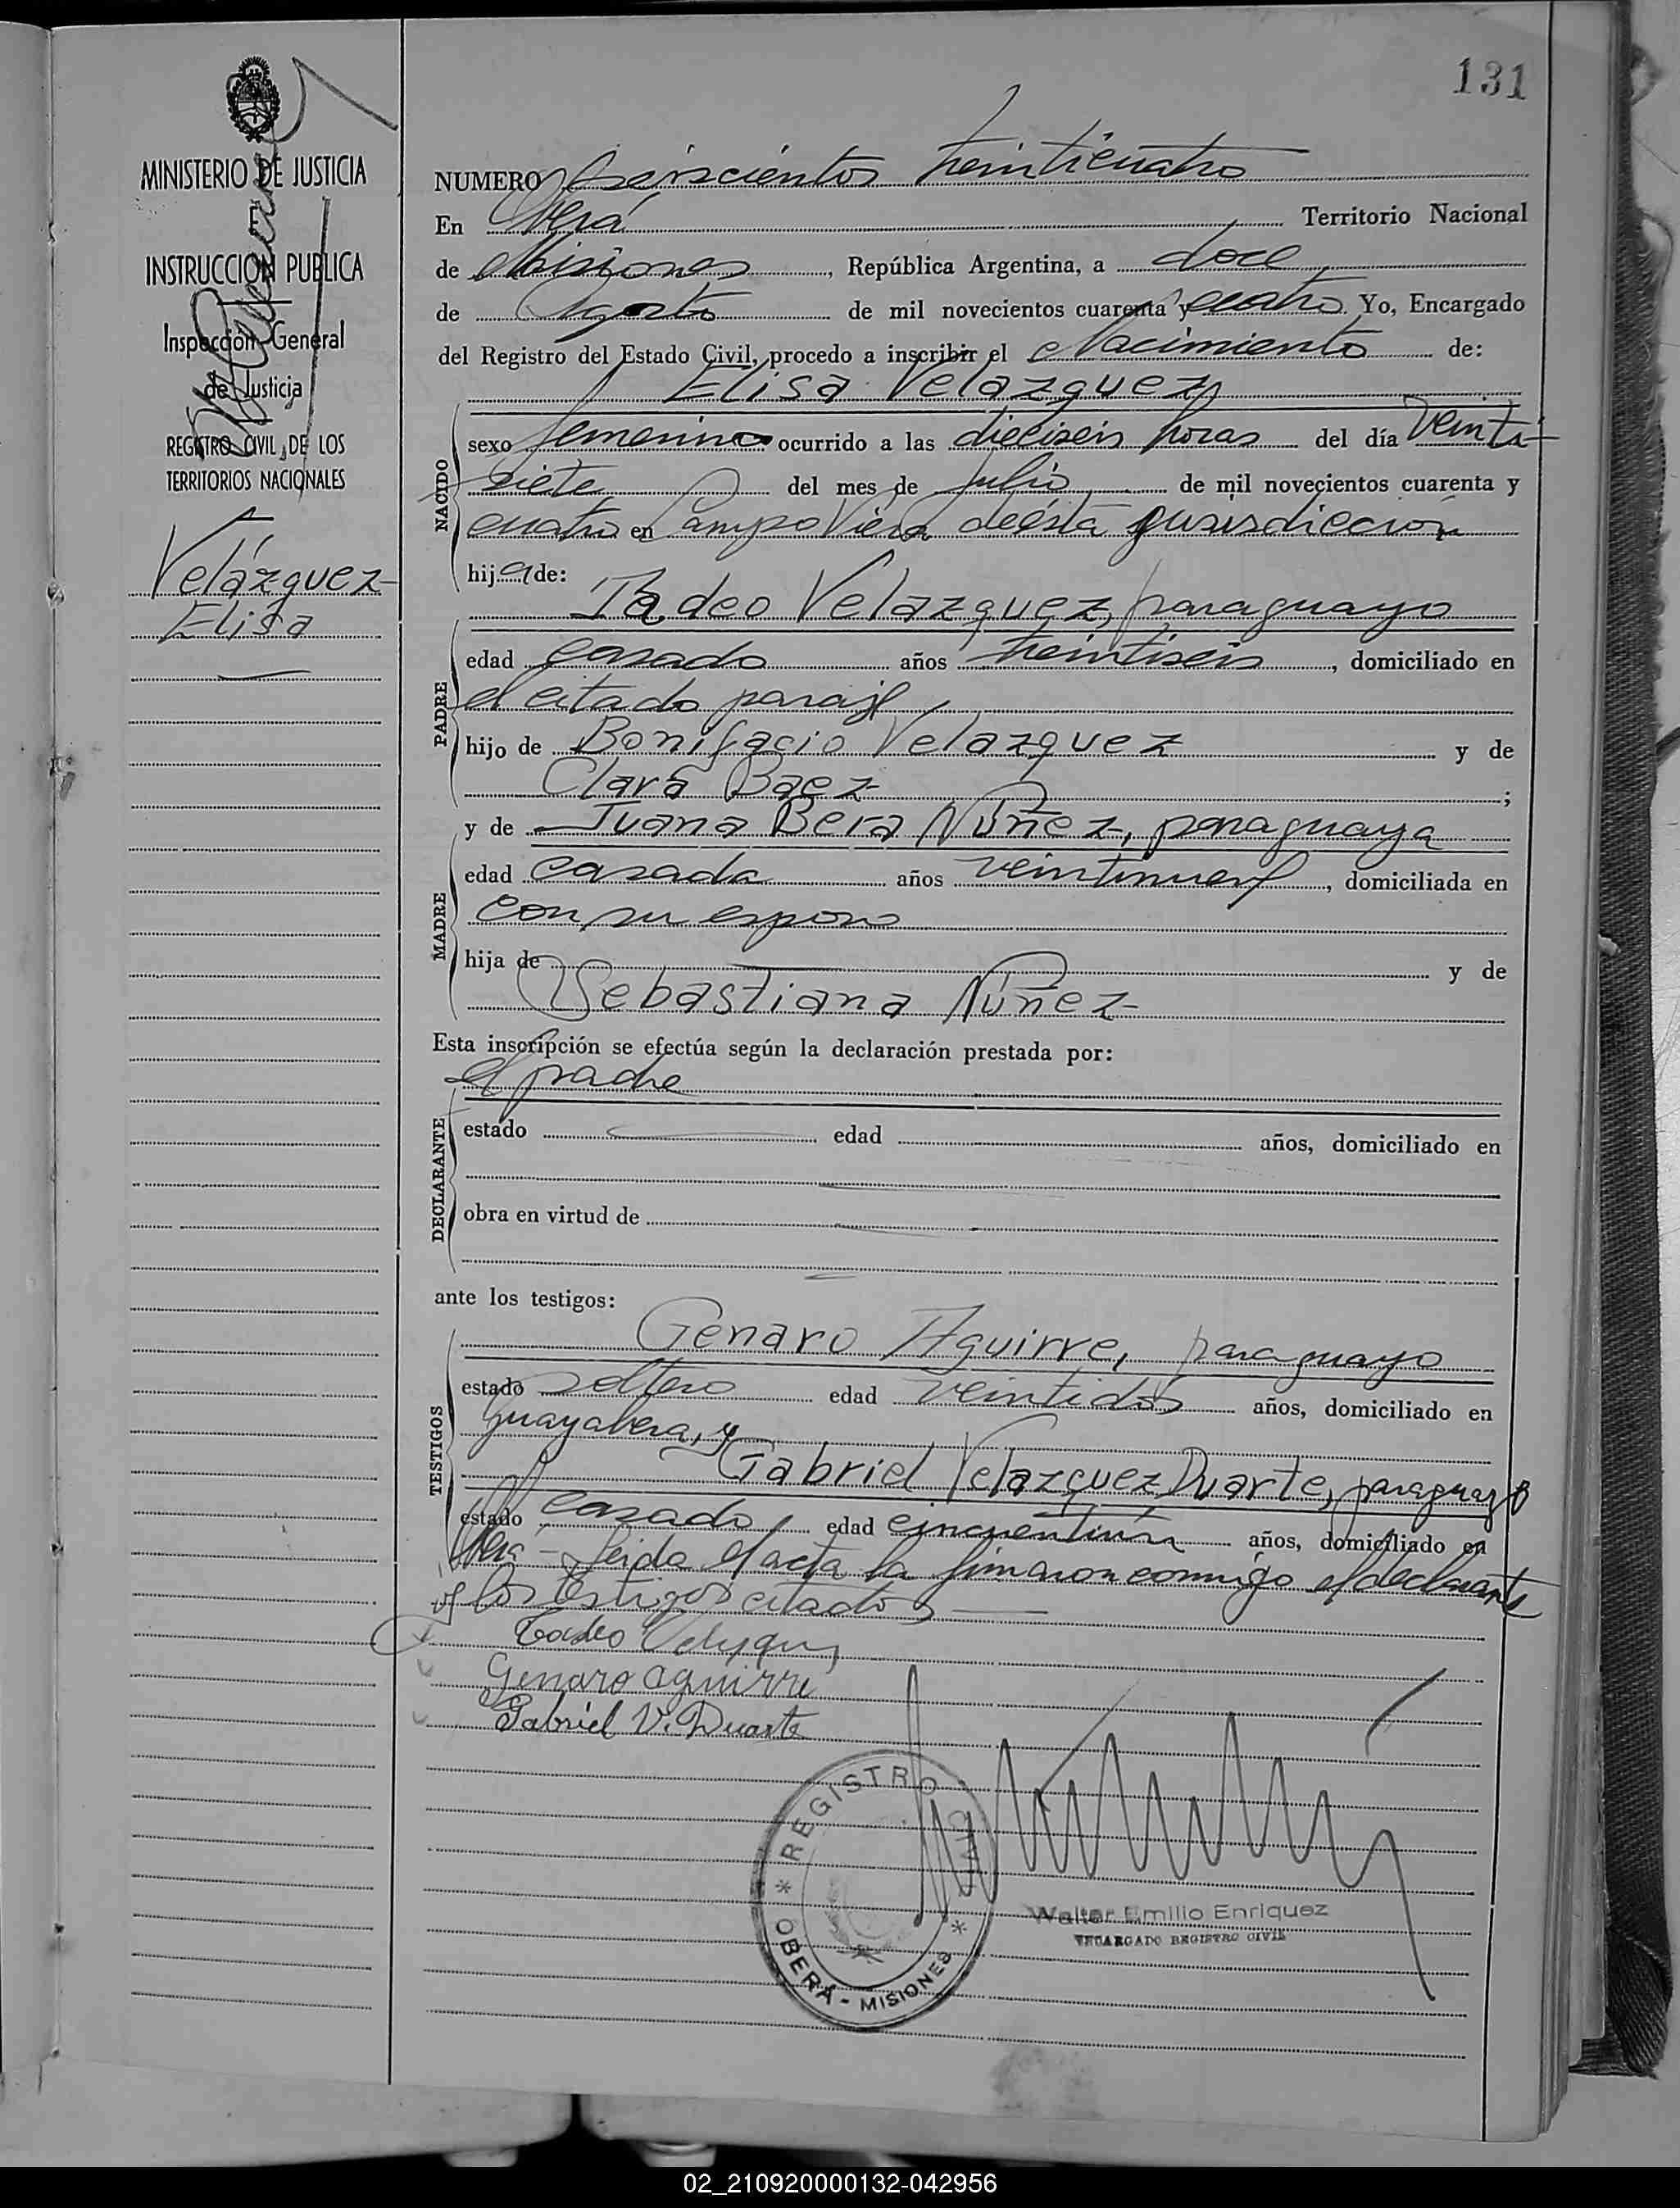 131
MINISTERIO DE JUSTICIA
E
INSTRUCCION PUBLICA
Inspección General
de Justicia
REGISTRO CIVIL DE LOS
TERRITORIOS NACIONALES
Velázquez
Elisa
NUMERO Seiscientos treinticuatro
En Oberá Territorio Nacional
de Misiones, República Argentina, a doce
de Agosto de mil novecientos cuarenta y cuatro Yo, Encargado
del Registro del Estado Civil, procedo a inscribir el Nacimiento de:
Elisa Velazquez
NACIDO
sexo femenino ocurrido a las dieciseis horas del día veinti-
siete del mes de Julio de mil novecientos cuarenta y
cuatro en Campo Viera de esta jurisdiccion
hija de:
PADRE
Tadeo Velazquez, paraguayo
edad casado años treintiseis, domiciliado en
el citado paraje
hijo de Bonifacio Velazquez y de
Clara Baez ;
MADRE
y de Juana Bera Nuñez, paraguaya
edad casada años veintinueve, domiciliada en
con su esposo
hija de — y de
Sebastiana Nuñez
Esta inscripción se efectúa según la declaración prestada por:
el padre
DECLARANTE
estado edad años, domiciliado en
obra en virtud de
ante los testigos:
TESTIGOS
Genaro Aguirre, paraguayo
estado soltero edad veintidos años, domiciliado en
Guayabera, y
Gabriel Velazquez Duarte, paraguayo
estado casado edad cincuentiun años, domiciliado en
Oberá - Leida el acta la firmaron conmigo el declarante
y los testigos citados —
Tadeo Velazquez
Genaro aguirre
Gabriel V. Duarte
REGISTRO CIVIL
OBERÁ - MISIONES
Walter Emilio Enriquez
ENCARGADO REGISTRO CIVIL
02_210920000132-042956